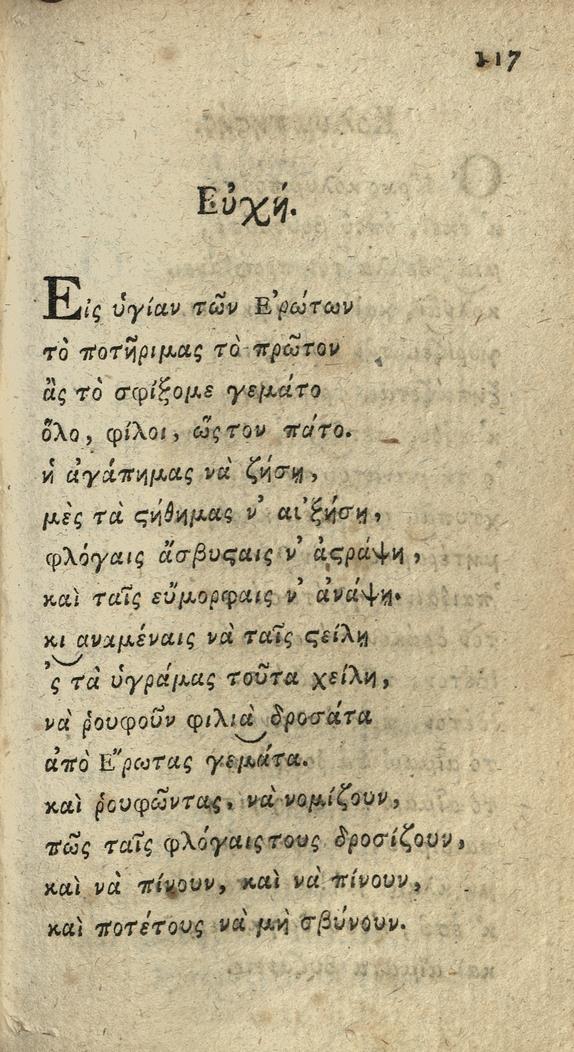 117
Εὐχή.
Εἰς ὑγίαν τῶν Ε᾿ρώτων
τὸ ποτῆριμας τὸ πρῶτον
ἂς τὸ σφίξομε γεμάτο
ὅλο, φίλοι, ὥςτον πάτο.
ἡ ἀγάπημας νὰ ζήσῃ,
μὲς τὰ ςήθημας ν' αὐξήσῃ,
φλόγαις ἄσβυςαις ν' ἀςράψῃ,
καὶ ταῖς εὔμορφαις ν' ἀνάψῃ.
κι αναμέναις νὰ ταῖς ςείλῃ
'ς τὰ ὑγράμας τοῦτα χείλη,
νὰ ῥουφοῦν φιλιὰ δροσάτα
ἀπὸ Ε῎ρωτας γεμάτα.
καὶ ῥουφῶντας, νὰ νομίζουν,
πῶς ταῖς φλόγαιςτους δροσίζουν,
καὶ νὰ πίνουν, καὶ νὰ πίνουν,
καὶ ποτέτους νὰ μὴ σβύνουν.